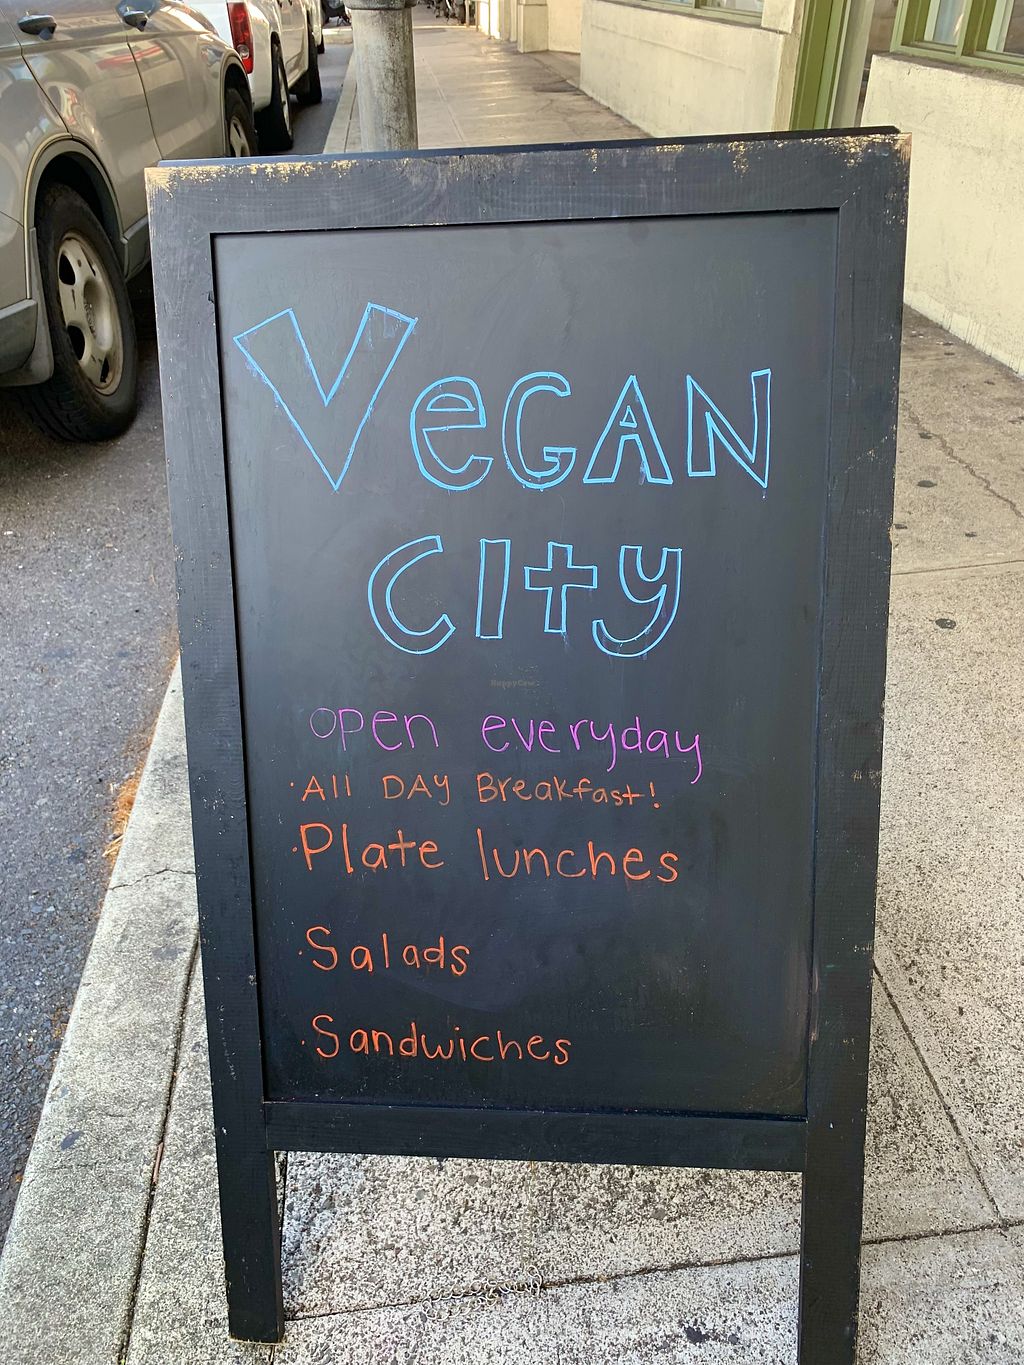 Vegan
City
HappyCow
open everyday
·All DAY Breakfast!
·Plate lunches
·Salads
·Sandwiches